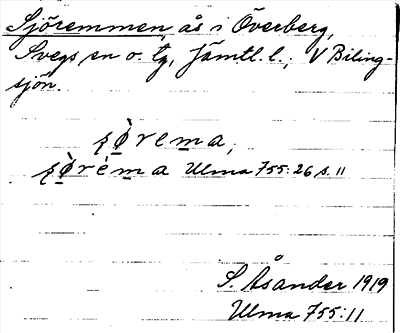 Sjöremmen, ås i Överberg,
Svegs sn o. tg, Jämtl. l.; V Biling-
sjön.
ʂø̀rema,
ʂø̀rèma Ulma 755:26 s. 11
S. Åsander 1919
Ulma 755:11